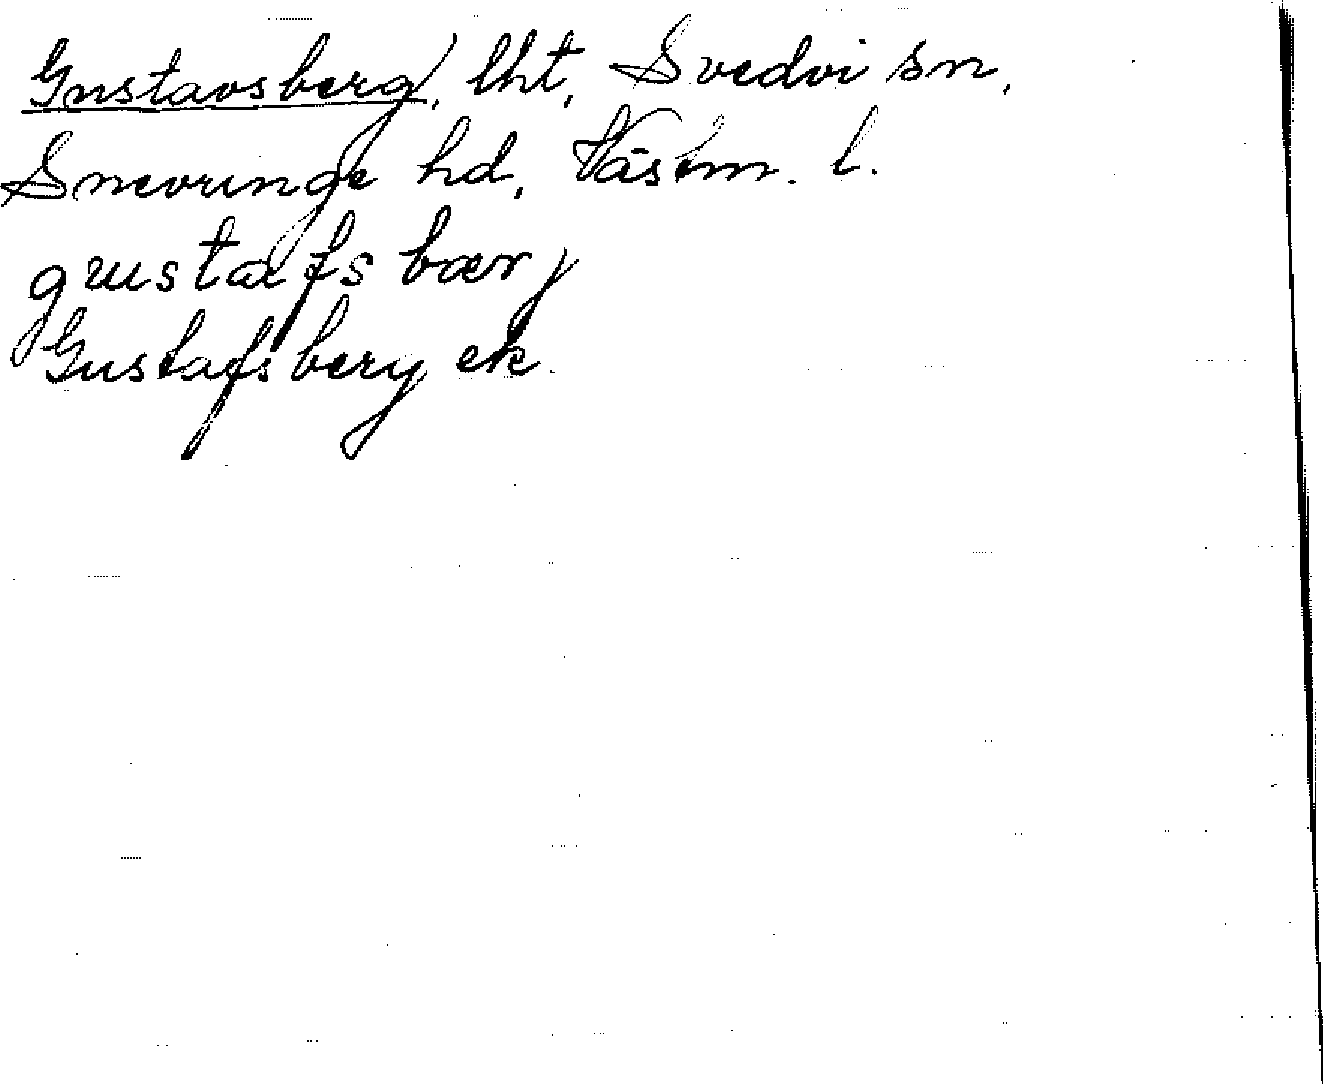 Gustavsberg, lht, Svedvi sn,
Snevringe hd, Västm. l.
gustafs bærj
Gustafsberg ek.